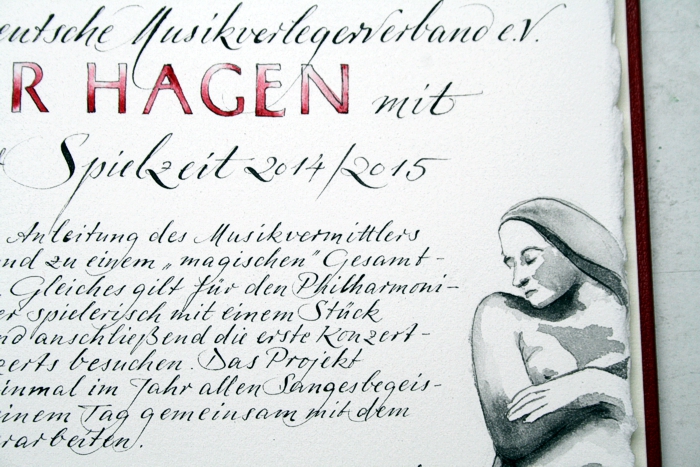 eutsche Musikverlegerverband e.V.
R HAGEN mit
Spielzeit 2014/2015
Anleitung des Musikvermittlers
nd zu einem „magischen" Gesamt-
Gleiches gilt für den Philharmoni-
er spielerisch mit einem Stück
nd anschließend die erste Konzert-
zerts besuchen. Das Projekt
inmal im Jahr allen Sangesbegeis-
einem Tag gemeinsam mit dem
rarbeiten.